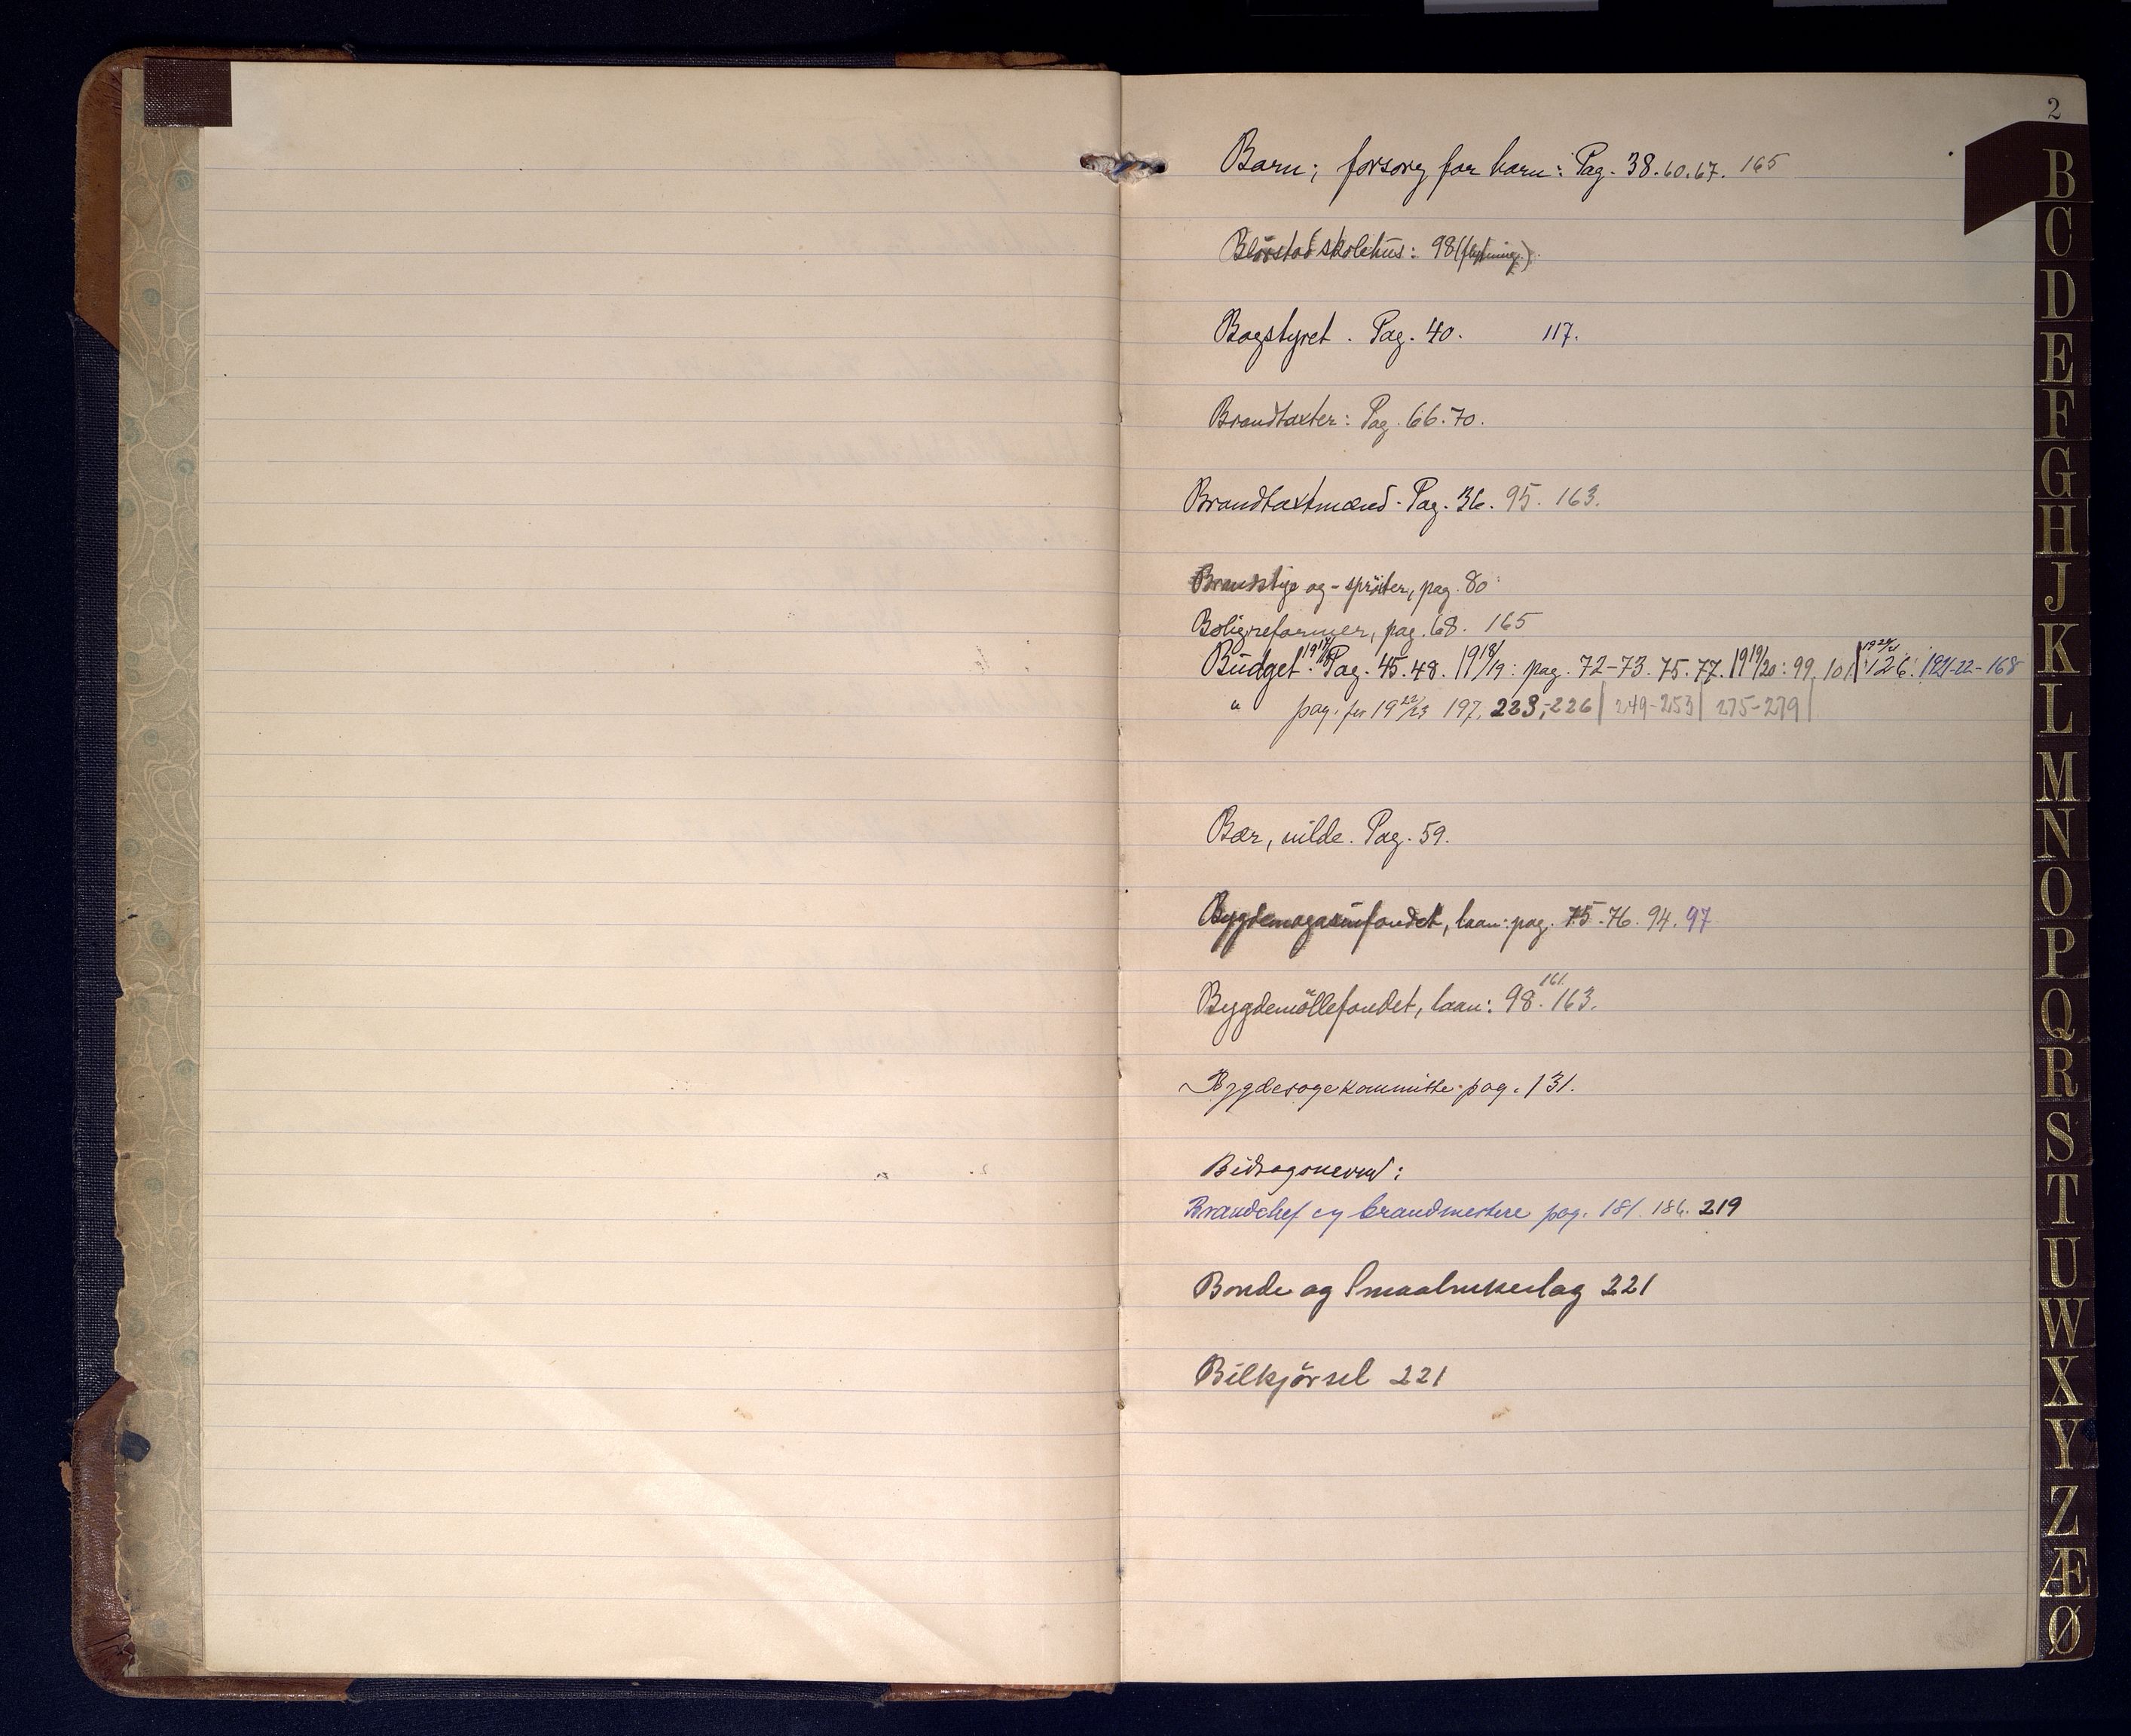 2
Barn; forsorg for barn: Pag. 38. 60. 67. 165
skolehus: 98 (flytning.)
Bogstyret. Pag. 40. 117.
Brandtaxter: Pag. 66. 70.
Brandtaxtmænd. Pag. 36. 95. 163.
Brandstige og -sprøiter, pag. 80
Boligreformer, pag. 68. 165
Budget: Pag. 45. 48. 1918/19: pag. 72-73. 75. 77. 1919/20: 99. 101. 126. 1921-22-168
" pag. for 1922/23 197. 223,-226 | 249-253 | 275-279 |
Bær, vilde. Pag. 59.
Bygdemagasinfondet, laan: pag. 75-76. 94. 97
161
Bygdemöllefondet, laan: 98. 163.
Bygdesogekommitte pag. 131.
Bidragsnevnd:
Brandchef og brandmestere pag. 181. 186. 219
Bonde og Smaabrukerlag 221
Bilkjörsel 221
B
C
D
E
F
G
H
J
K
L
M
N
O
P
Q
R
S
T
U
W
X
Y
Z
Æ
Ø